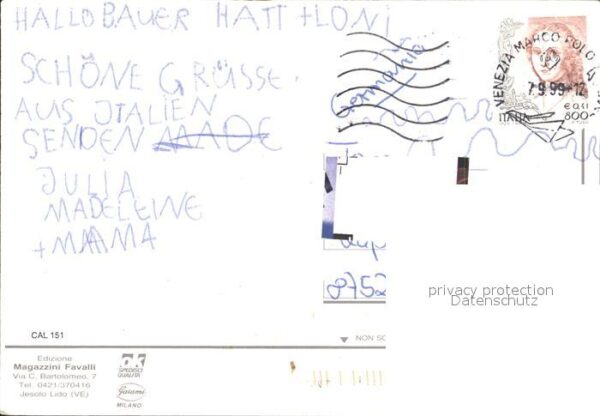 HALLO BAUER HATT + LONI
SCHÖNE GRÜSSE
AUS ITALIEN
SENDEN MADE
JULIA
MADELEINE
+ MAAMA
Germania
VENEZIA MARCO POLO
7.9.99-12
€ 0,41
ITALIA 800
8752
privacy protection
Datenschutz
CAL 151
NON SC
Edizione
Magazzini Favalli
Via C. Bartolomeo, 7
Tel. 0421/370416
Jesolo Lido (VE)
OK
SPEDISCI
QUALITÀ
MILANO